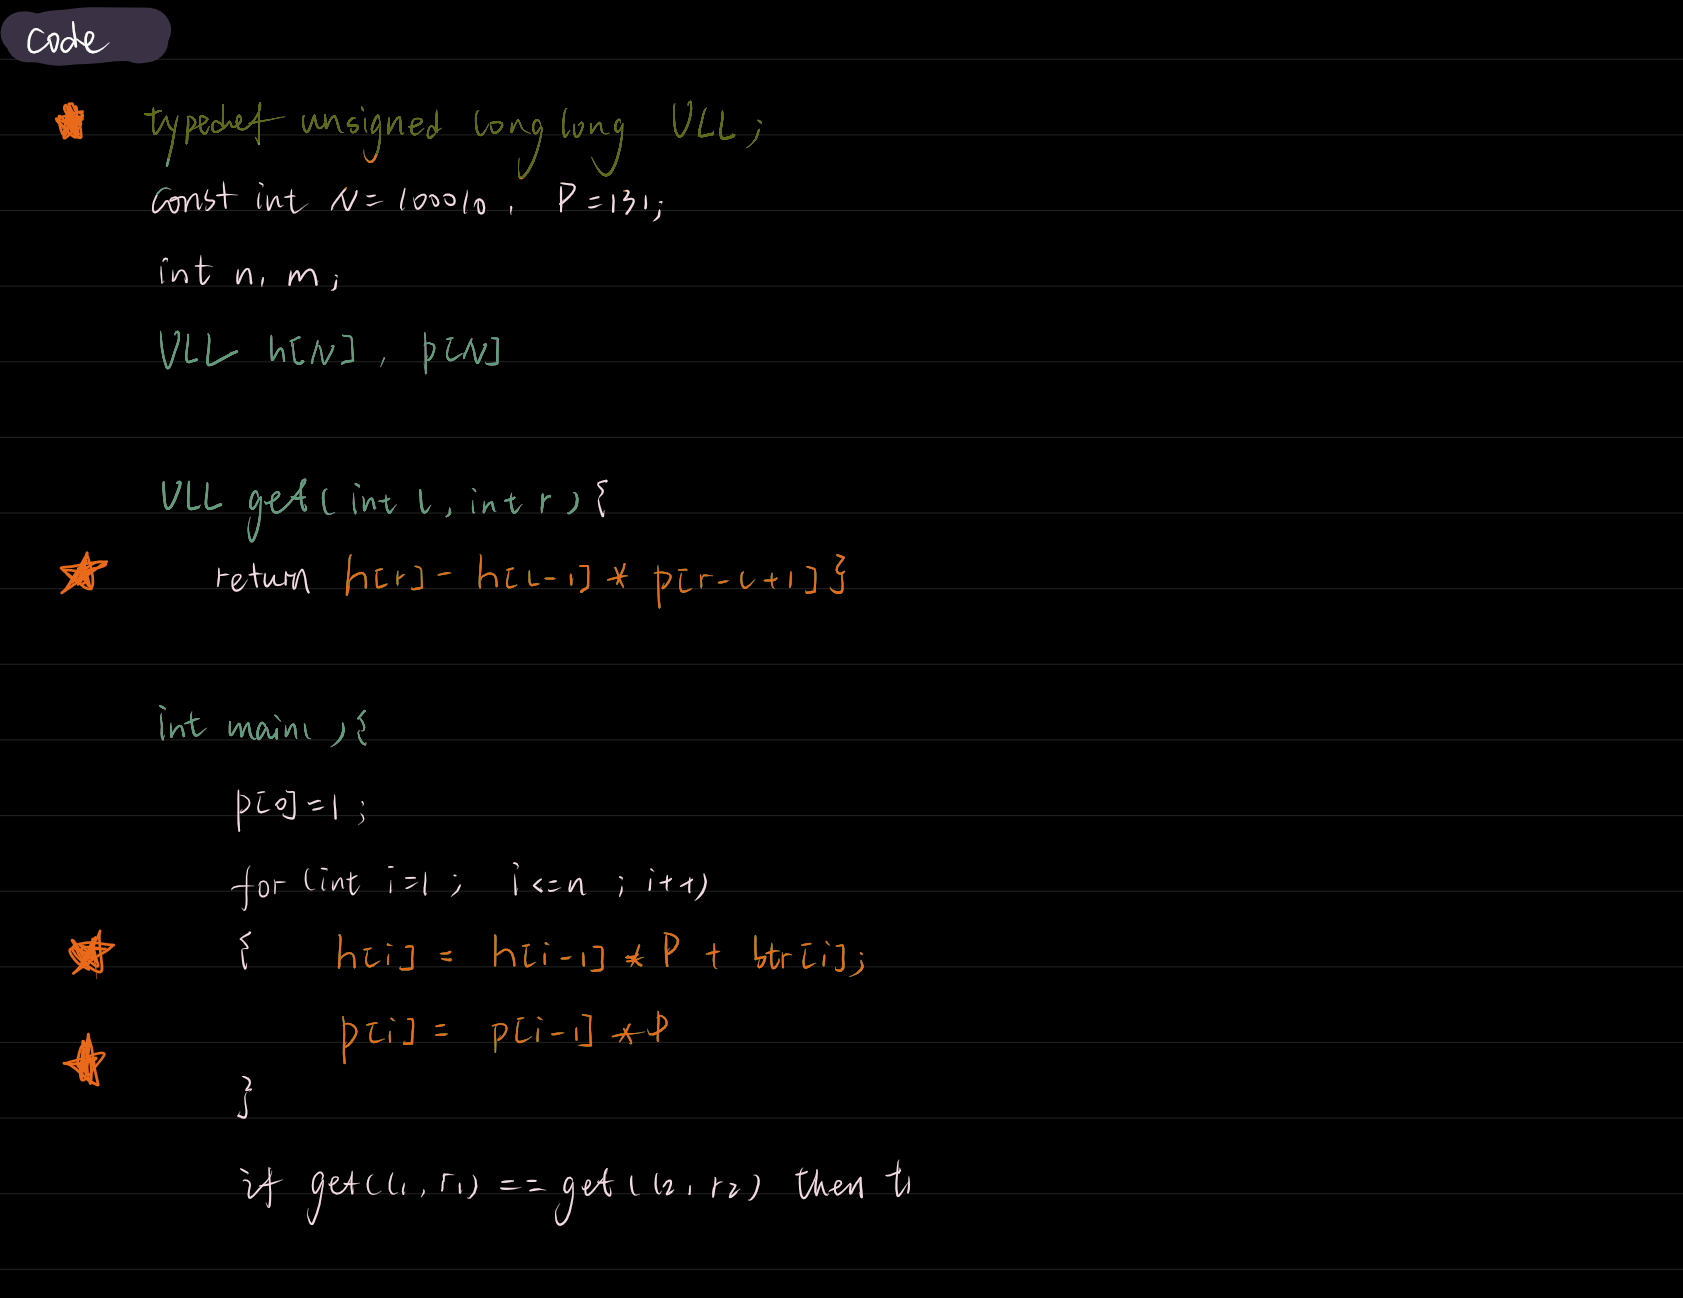 code
typedef unsigned long long ULL;
const int N = 100010, P = 131;
int n, m;
ULL h[N], p[N]
ULL get(int l, int r){
return h[r] - h[l-1] * p[r-l+1]}
int main(){
p[0]=1;
for (int i=1; i<=n; i++)
{ h[i] = h[i-1] * P + str[i];
p[i] = p[i-1] * P
}
if get(l1, r1) == get(l2, r2) then